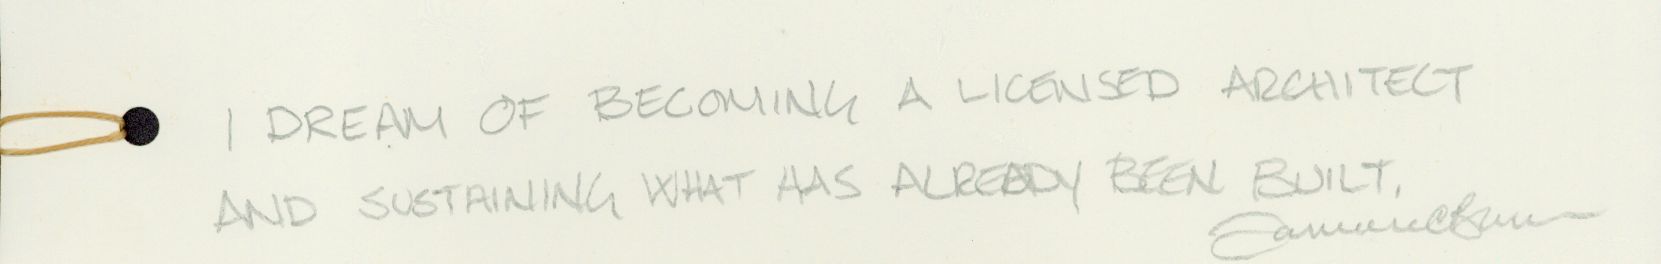 I DREAM OF BECOMING A LICENSED ARCHITECT
AND SUSTAINING WHAT HAS ALREADY BEEN BUILT.